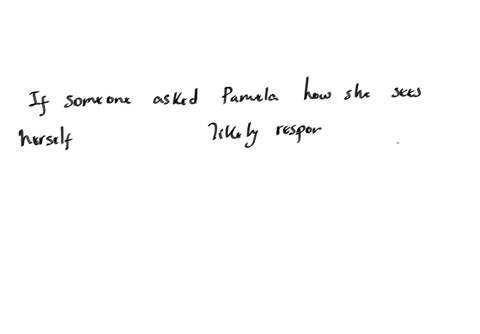 If someone asked Pamela how she sees
herself likely respor